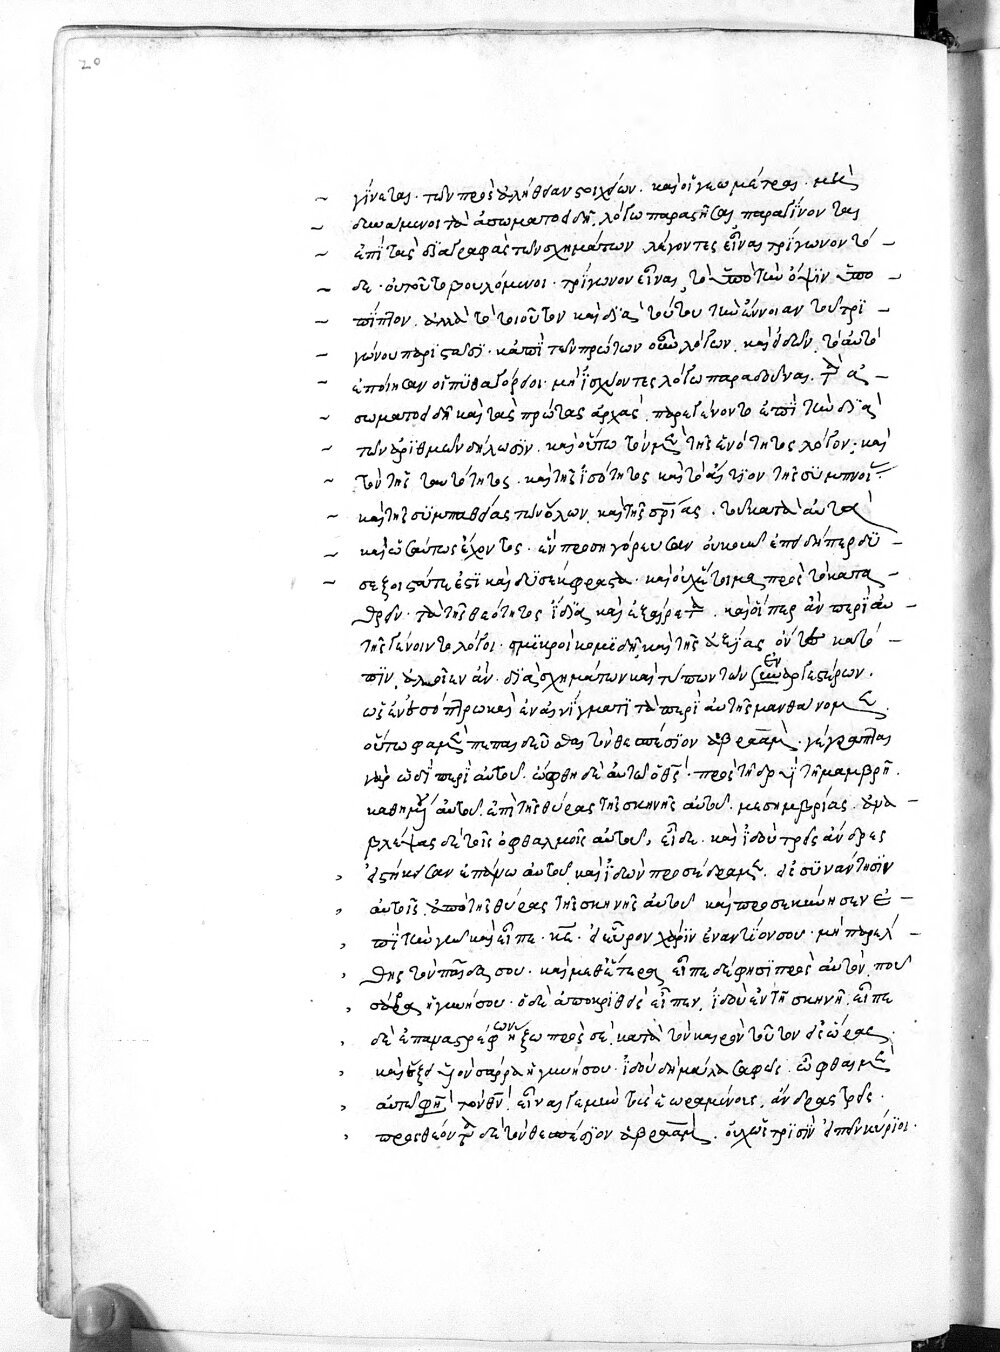 20
γίνεται τῶν πρὸς ἀλήθειαν στοιχείων. καὶ οἱ γεωμέτραι. μὴ
δυνάμενοι τὰ ἀσωματοειδῆ λόγω παραστῆσαι παραγίνονται
ἐπὶ τὰς διαγραφὰς τῶν σχημάτων λέγοντες εἶναι τρίγωνον τό
δε· οὐ τοῦτο βουλόμενοι· τρίγωνον εἶναι, τὸ ὑπὸ τὴν ὄψιν ὑπο
πίπτον. ἀλλὰ τὸ τοιοῦτον καὶ διὰ τούτου τὴν ἔννοιαν τοῦ τρι
γώνου παριστᾶσι· κἀπὶ τῶν πρώτων οὖν λόγων, καὶ εἰδῶν, τὸ αὐτὸ
ἐποίησαν οἱ πυθαγόρειοι· μὴ ἰσχύοντες λόγω παραδιδόναι. τὰ ἀ
σωματοειδῆ καὶ τὰς πρώτας ἀρχὰς παρεγένοντο ἐπὶ τὴν διὰ
τῶν ἀριθμῶν δήλωσιν. καὶ οὕτω τὸν μὲν τῆς ἑνότητος λόγον· καὶ
τὸν τῆς ταυτότητος. καὶ τῆς ἰσότητος καὶ τὸ αἴτιον τῆς συμπνοί
καὶ τῆς συμπαθείας τῶν ὅλων, καὶ τῆς σωτηρίας. τοῦ κατὰ αὐτὰ
καὶ ὡσαύτως ἔχοντος. ἓν προσηγόρευσαν οὐκοῦν ἐπειδήπερ δυ
σέξοιστά τε ἐστι καὶ δυσέκφραστα. καὶ οὐχ ἕτοιμα πρὸς τὸ κατα
θρεῖν. τὰ τῆς θεότητος ἴδια καὶ ἐξαίρετα. καὶ οἵπερ ἂν περὶ αὐ
τῆς γένοιντο λόγοι. σμικροὶ κομιδῆ καὶ τῆς ἀξίας ὄντως κατό
πιν, ἀλοῖεν ἄν. διὰ σχημάτων καὶ τύπων τῶν ἐναργεστέρων.
ὡς ἐν ἐσόπτρω καὶ ἐν αἰνίγματι τὰ περὶ αὐτῆς μανθάνομεν.
οὕτω φαμὲν πεπαιδεῦσθαι τὸν θεσπέσιον ἀβραάμ. γέγραπται
γὰρ ὡδὶ περὶ αὐτοῦ. ὤφθη δὲ αὐτῶ ὁ θς· πρὸς τῆ δρυῒ τῆ μαμβρῆ.
καθημένου αὐτοῦ ἐπὶ τῆς θύρας τῆς σκηνῆς αὐτοῦ. μεσημβρίας. ἀνα
βλέψας δὲ τοῖς ὀφθαλμοῖς αὐτοῦ, εἶδε. καὶ ἰδοὺ τρεῖς ἄνδρες
εἱστήκεισαν ἐπάνω αὐτοῦ, καὶ ἰδὼν προσέδραμεν. εἰς συνάντησιν
αὐτοῖς. ἀπὸ τῆς θύρας τῆς σκηνῆς αὐτοῦ καὶ προσεκύνησεν ἐ
πὶ τὴν γῆν καὶ εἶπε· κε. εἰ εὗρον χάριν ἐναντίον σου· μὴ παρέλ
θης τὸν παῖδα σου. καὶ μεθ' ἕτερα, εἶπε δέ φησι πρὸς αὐτόν. ποῦ
σάρρα ἡ γυνή σου. ὁ δὲ ἀποκριθεὶς εἶπεν, ἰδοὺ ἐν τῆ σκηνῆ, εἶπε
δὲ ἐπαναστρέφων ἥξω πρὸς σὲ κατὰ τὸν καιρὸν τοῦτον εἰς ὥρας,
καὶ ἕξει υἱὸν σάρρα ἡ γυνή σου. ἰδοὺ δὴ μάλα σαφῶς. ὦφθαι μὲν
αὐτῶ φησὶ τὸν θν. εἶναι γε μὴν τοὺς ἑωραμένους, ἄνδρας τρεῖς.
προσθέοντα δὲ τὸν θεσπέσιον ἀβραάμ. οὐχ ὡς τρισὶν εἰπεῖν κύριοι.